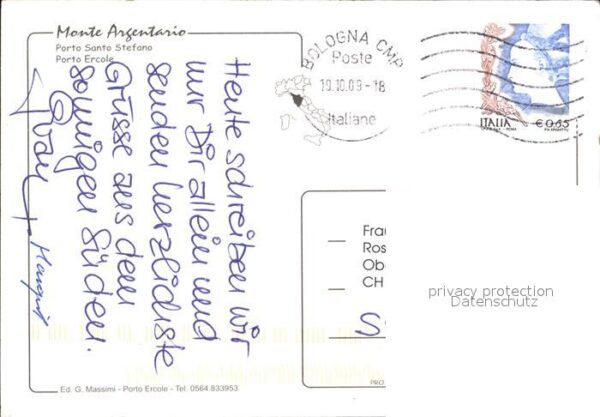 Monte Argentario
Porto Santo Stefano
Porto Ercole
Heute schreiben wir
nur Dir allein und
senden herzlichste
Grüsse aus dem
sonnigen Süden.
BOLOGNA CMP
Poste
19.10.09-18
Italiane
ITALIA
€0,65
Frau
Ros
Ob
CH
S
privacy protection
Datenschutz
PRO
Ed. G. Massimi - Porto Ercole - Tel. 0564.833953